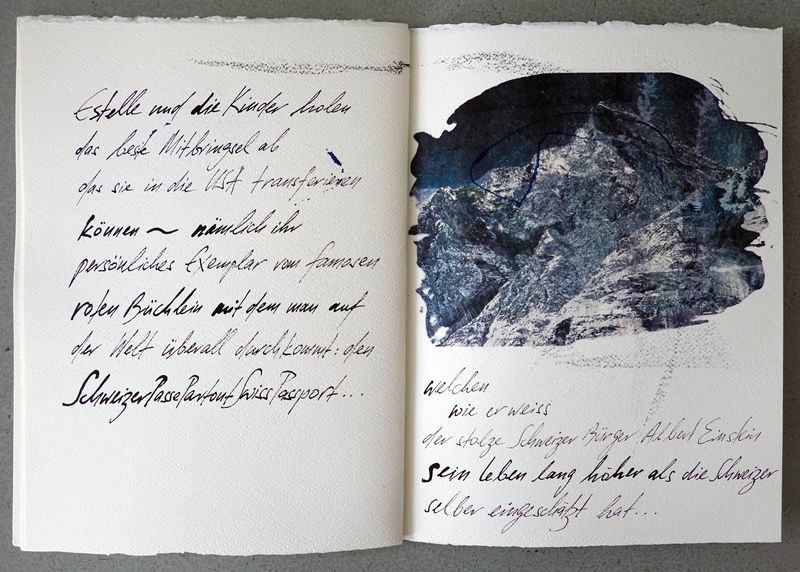 Estelle und die Kinder holen
das beste Mitbringsel ab
das sie in die USA transferieren
können ~ nämlich ihr
persönliches Exemplar vom famosen
roten Büchlein mit dem man auf
der Welt überall durchkommt: den
SchweizerPassePartoutSwissPassport...
welchen
wie er weiss
der stolze Schweizer Bürger Albert Einstein
sein leben lang höher als die Schweizer
selber eingeschätzt hat...